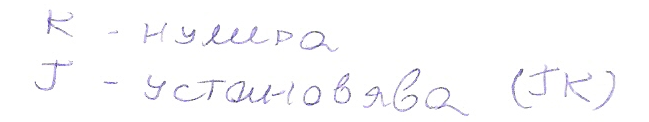 K - нулира
J - установява (JK)